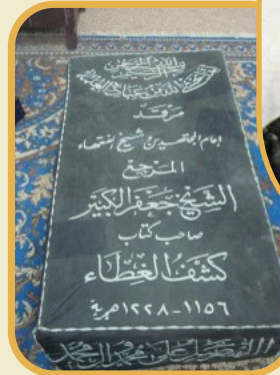 بسم الله الرحمن الرحيم
إنما يخشى الله من عباده العلماء
مرقد
إمام المجتهدين شيخ الفقهاء
المرجع
الشيخ جعفر الكبير
صاحب كتاب
كشف الغطاء
١١٥٦-١٢٢٨ هجرية
اللهم صل على محمد وآل محمد